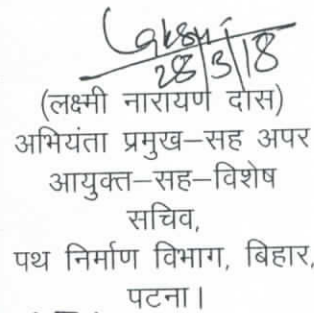 Laksmi
28/3/18
(लक्ष्मी नारायण दास)
अभियंता प्रमुख–सह अपर
आयुक्त–सह–विशेष
सचिव,
पथ निर्माण विभाग, बिहार,
पटना।